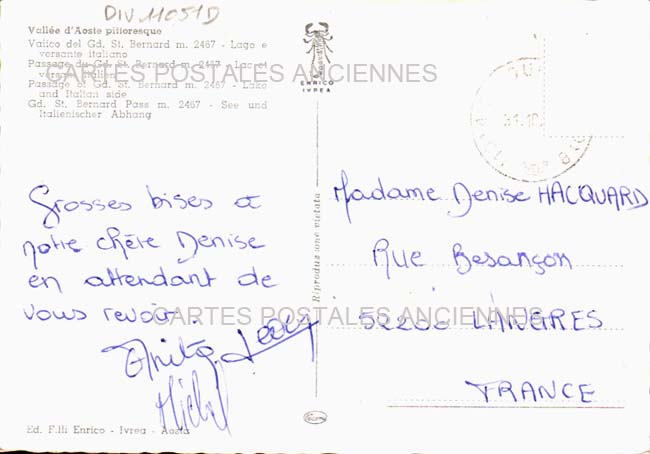 DIV11051D
Vallée d'Aoste pittoresque
Valico del Gd. St. Bernard m. 2467 - Lago e
versante italiano
Passage du Gd. St. Bernard m. 2467 - Lac et
versant italien
Passage of Gd. St. Bernard m. 2467 - Lake
and Italian side
Gd. St. Bernard Pass m. 2467 - See und
Italienischer Abhang
CARTES POSTALES ANCIENNES
ENRICO
IVREA
Grosses bises a
notre chère Denise
en attendant de
vous revoir.
Anita
Michel
Riproduzione vietata
Madame Denise HACQUARD
Rue Besançon
52200 LANGRES
FRANCE
CARTES POSTALES ANCIENNES
Ed. F.lli Enrico - Ivrea - Aosta